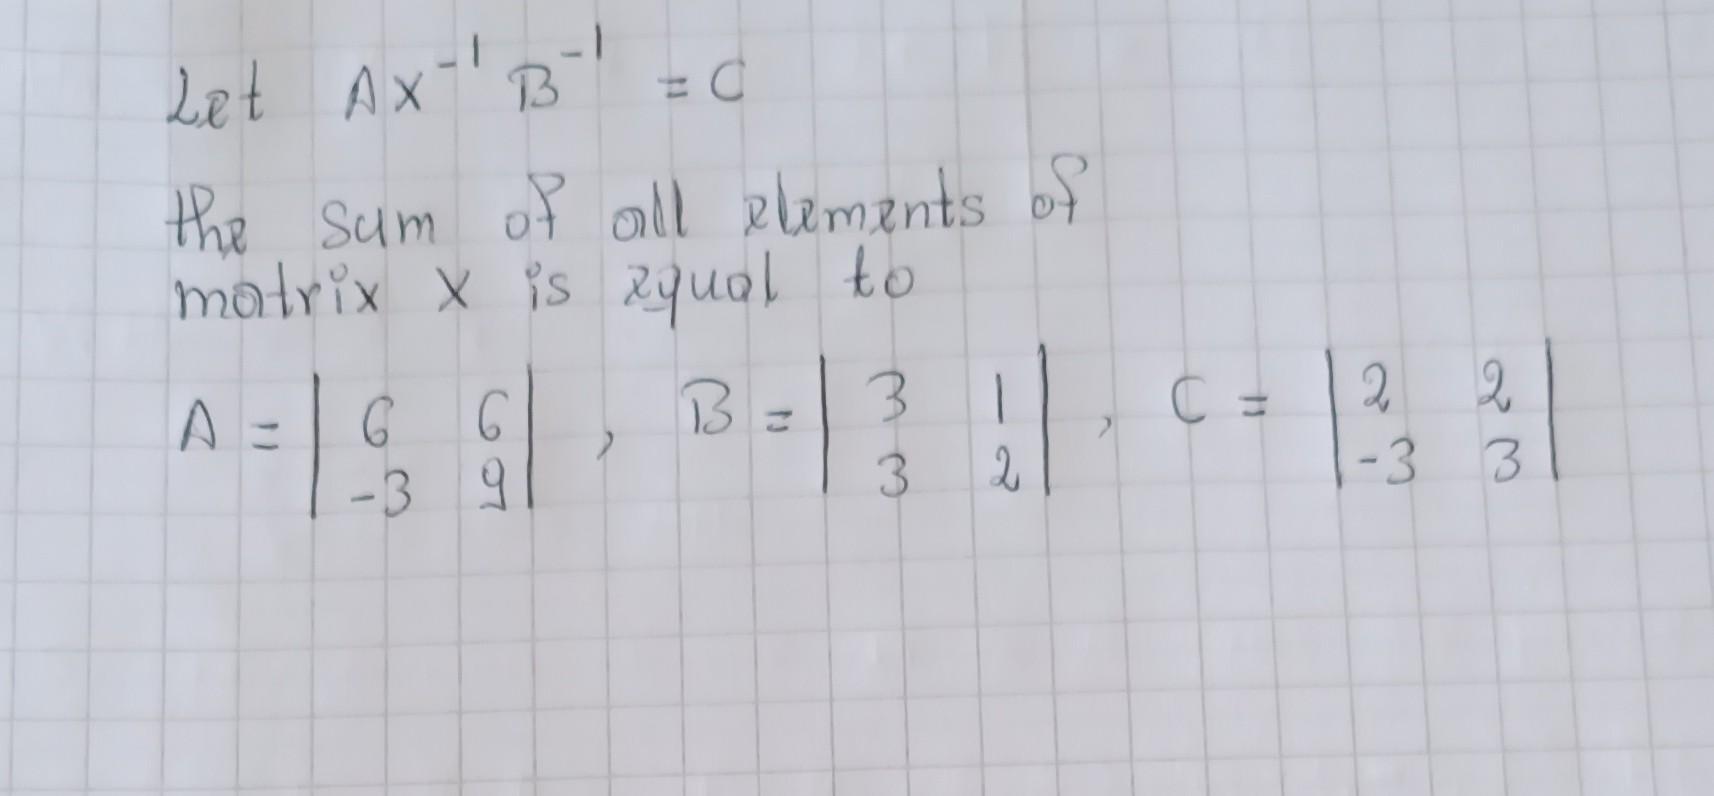 Let AX⁻¹ B⁻¹ = C
the sum of all elements of
matrix X is equal to
A = | 6 6 | , B = | 3 1 | , C = | 2 2 |
| -3 9 | | 3 2 | | -3 3 |